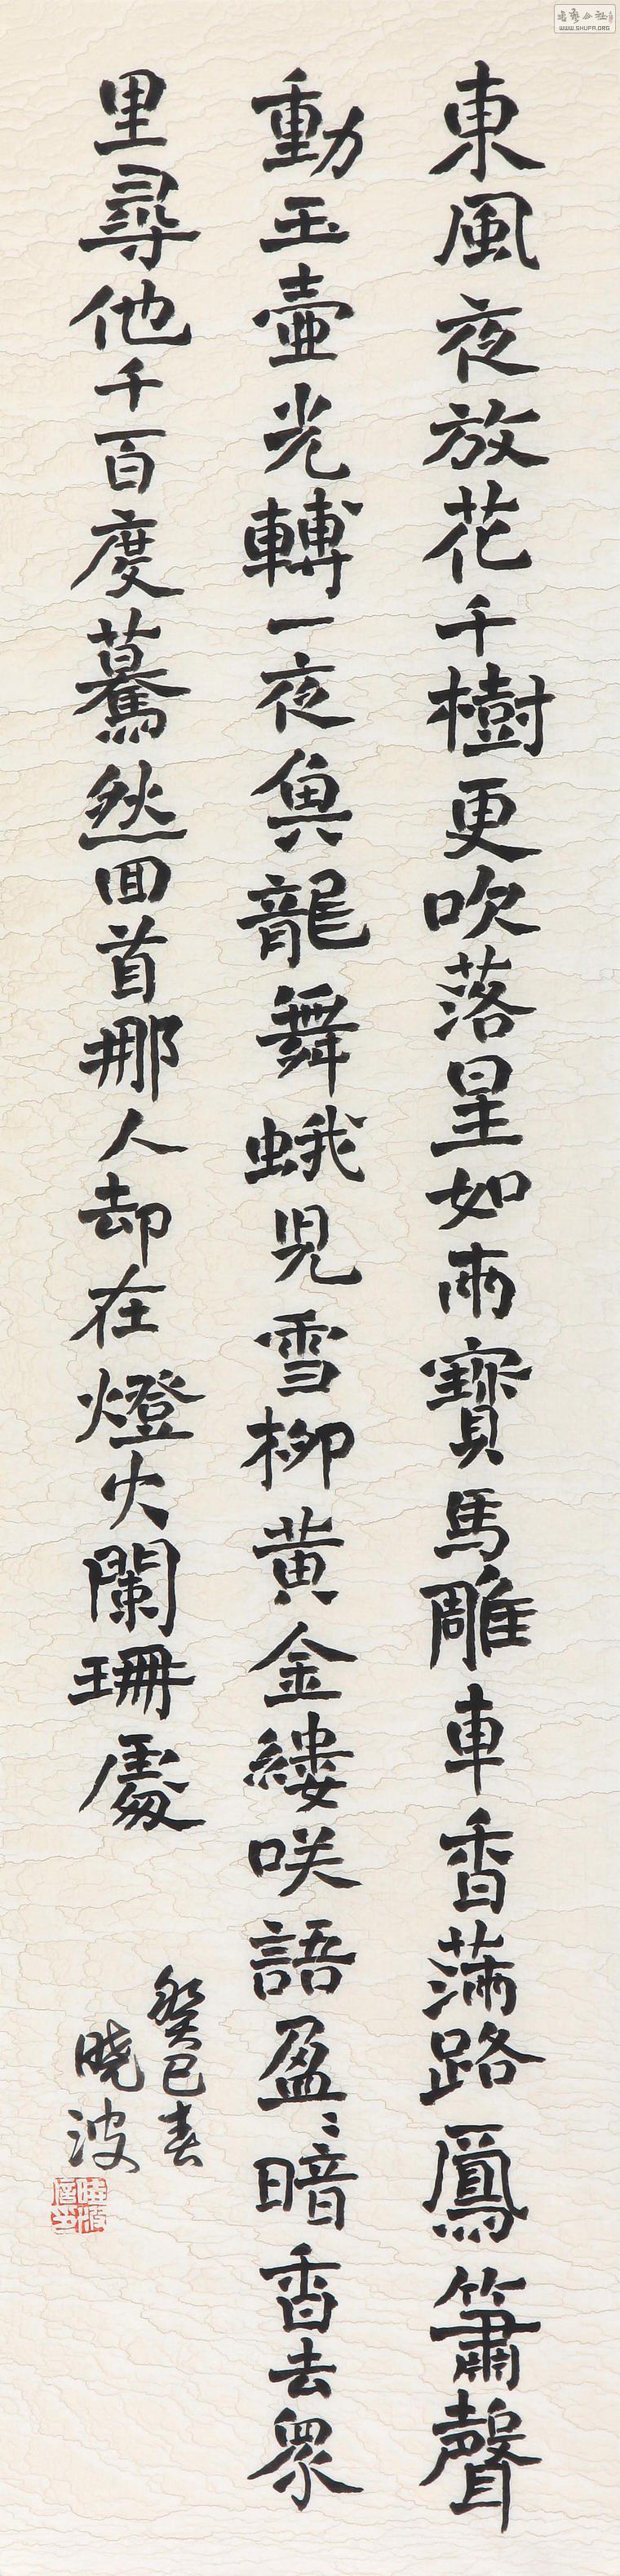 東風夜放花千樹更吹落星如雨寶馬雕車香滿路鳳簫聲
動玉壺光轉一夜魚龍舞蛾兒雪柳黃金縷咲語盈〻暗香去眾
里尋他千百度驀然回首那人却在燈火闌珊處
癸巳春
曉波
WWW.SHUFA.ORG